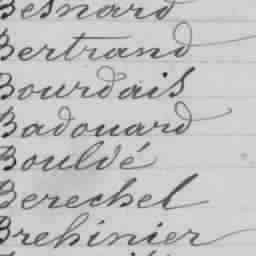 Besnard
Bertrand
Bourdais
Badouard
Bouldé
Berechel
Brehinier